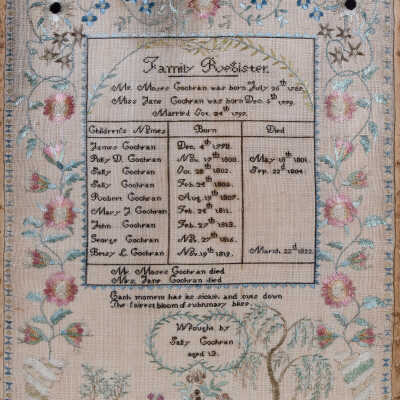 Family Register.
Mr. Moses Cochran was born July 26th
Miss Jane Cochran was born Dec. 5th
Married Oct. 24th 1797.
Children's Names Born Died
James Cochran Dec. 4th 1798.
D. Cochran Nov. 17th 1800. May 18th 1801.
Sally Cochran Oct. 28th 1802. Sep. 22d 1804.
Sally Cochran Feb. 26th 1805.
Robert Cochran Aug. 19th 1807.
Mary J. Cochran Feb. 26th 1811.
John Cochran Feb. 27th 1813.
George Cochran Nov. 27th 1816.
Betsy L. Cochran Nov. 19th 1819. March 22d 1822.
Mr. Moses Cochran died
Mrs. Jane Cochran died
Each moment has its sickle and cuts down
The fairest bloom of sublunary bliss.
Wrought by
Sally Cochran
aged 13.